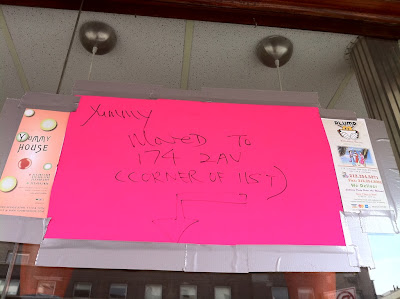 Yummy
Moved To
174 2AV
(CORNER OF 11ST)
YUMMY
HOUSE
PLUMP
We Deliver